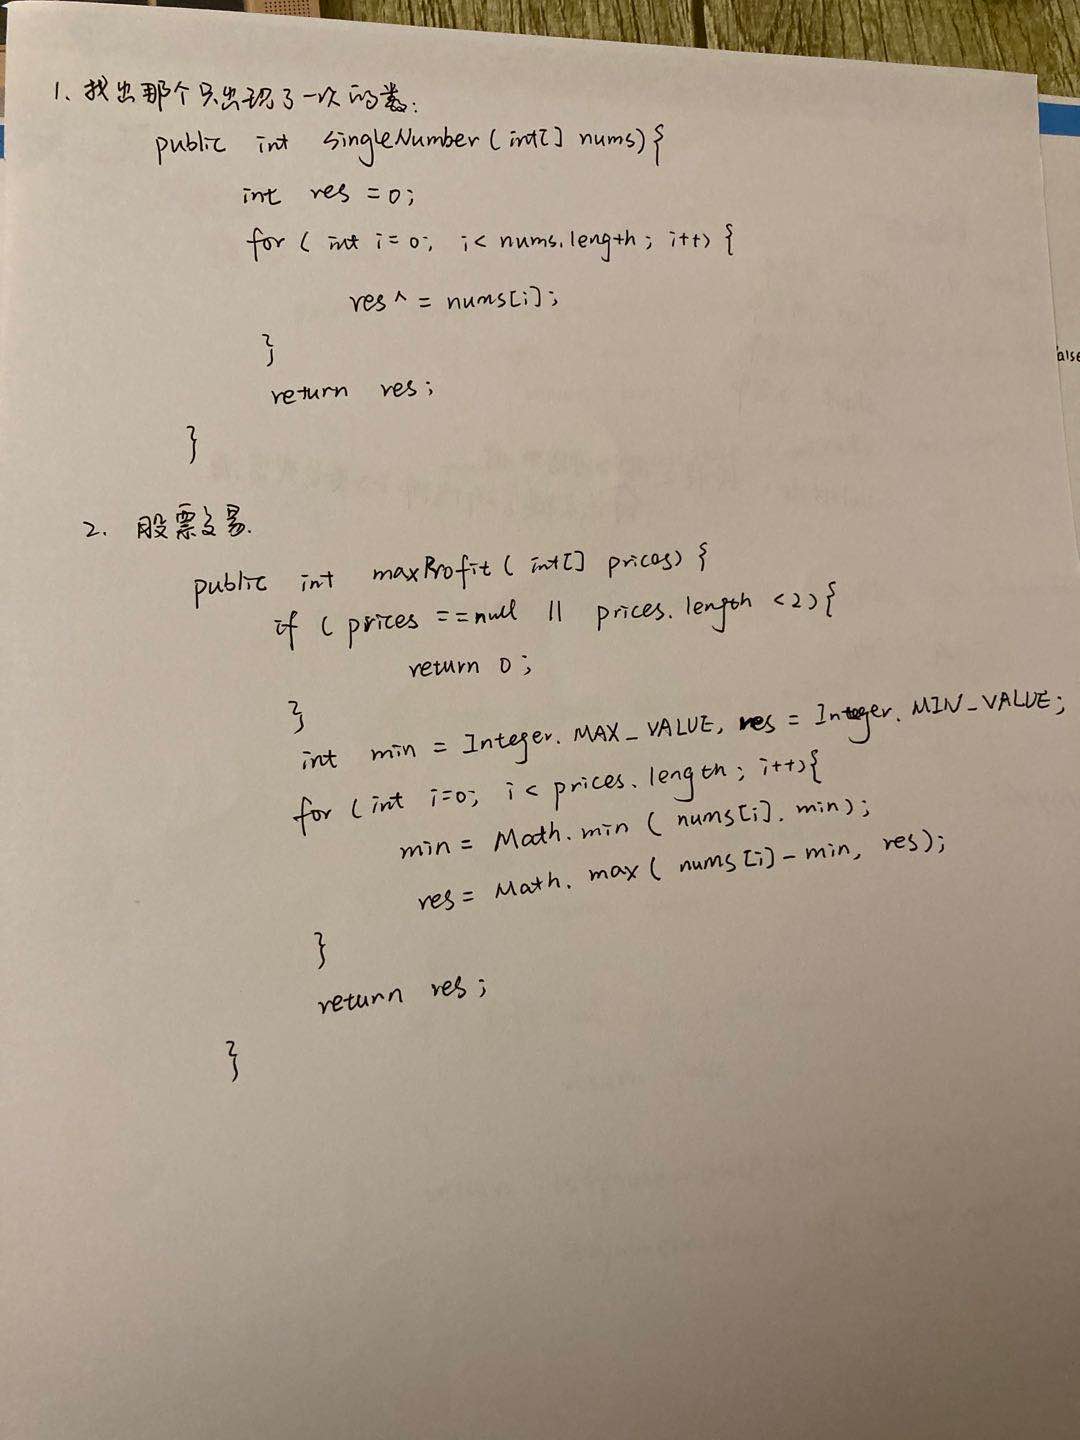 1、找出那个只出现了一次的数:
public int singleNumber(int[] nums){
int res = 0;
for( int i=0; i< nums.length; i++){
res^ = nums[i];
}
return res;
}
2. 股票交易.
public int maxProfit( int[] prices) {
if ( prices ==null || prices. length <2){
return 0;
}
int min = Integer. MAX_VALUE, res = Integer. MIN_VALUE;
for (int i=0; i< prices. length; i++){
min = Math. min ( nums[i]. min);
res = Math. max( nums[i]-min, res);
}
return res;
}
alse